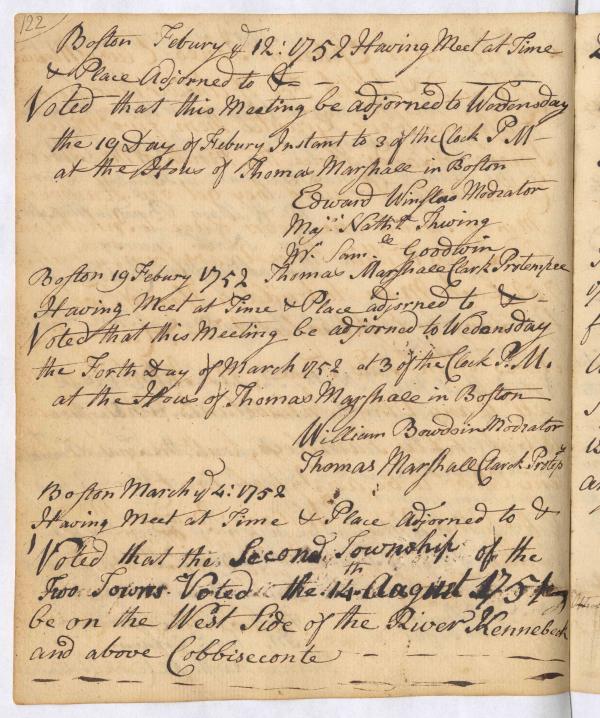 122
Boston Febury ye 12: 1752 Having Meet at Time
& Place Adjorned to &
Voted that this Meeting be adjorned to Wedensday
the 19 Day of Febury Instant to 3 of the Clock P.M
at the Hous of Thomas Marshall in Boston
Edward Winslas Modrator
Maj.r Nathll Thwing
Mr. Sam.ll Goodwin
Boston 19 Febury 1752 Thomas Marshall Clark Protempee
Having Meet at Time & Place adjorned to &
Voted that this Meeting be adjorned to Wedensday
the Forth Day of March 1752 at 3 of the Clock P.M.
at the Hous of Thomas Marshall in Boston
William Bowdoin Modrator
Thomas Marshall Clarck Protep
Boston March ye 4: 1752
Having Meet at Time & Place Adjorned to &
Voted that the Second Township of the
Two Towns Voted the 14th August 1751
be on the West Side of the River Kennebeck
and above Cobbiseconte